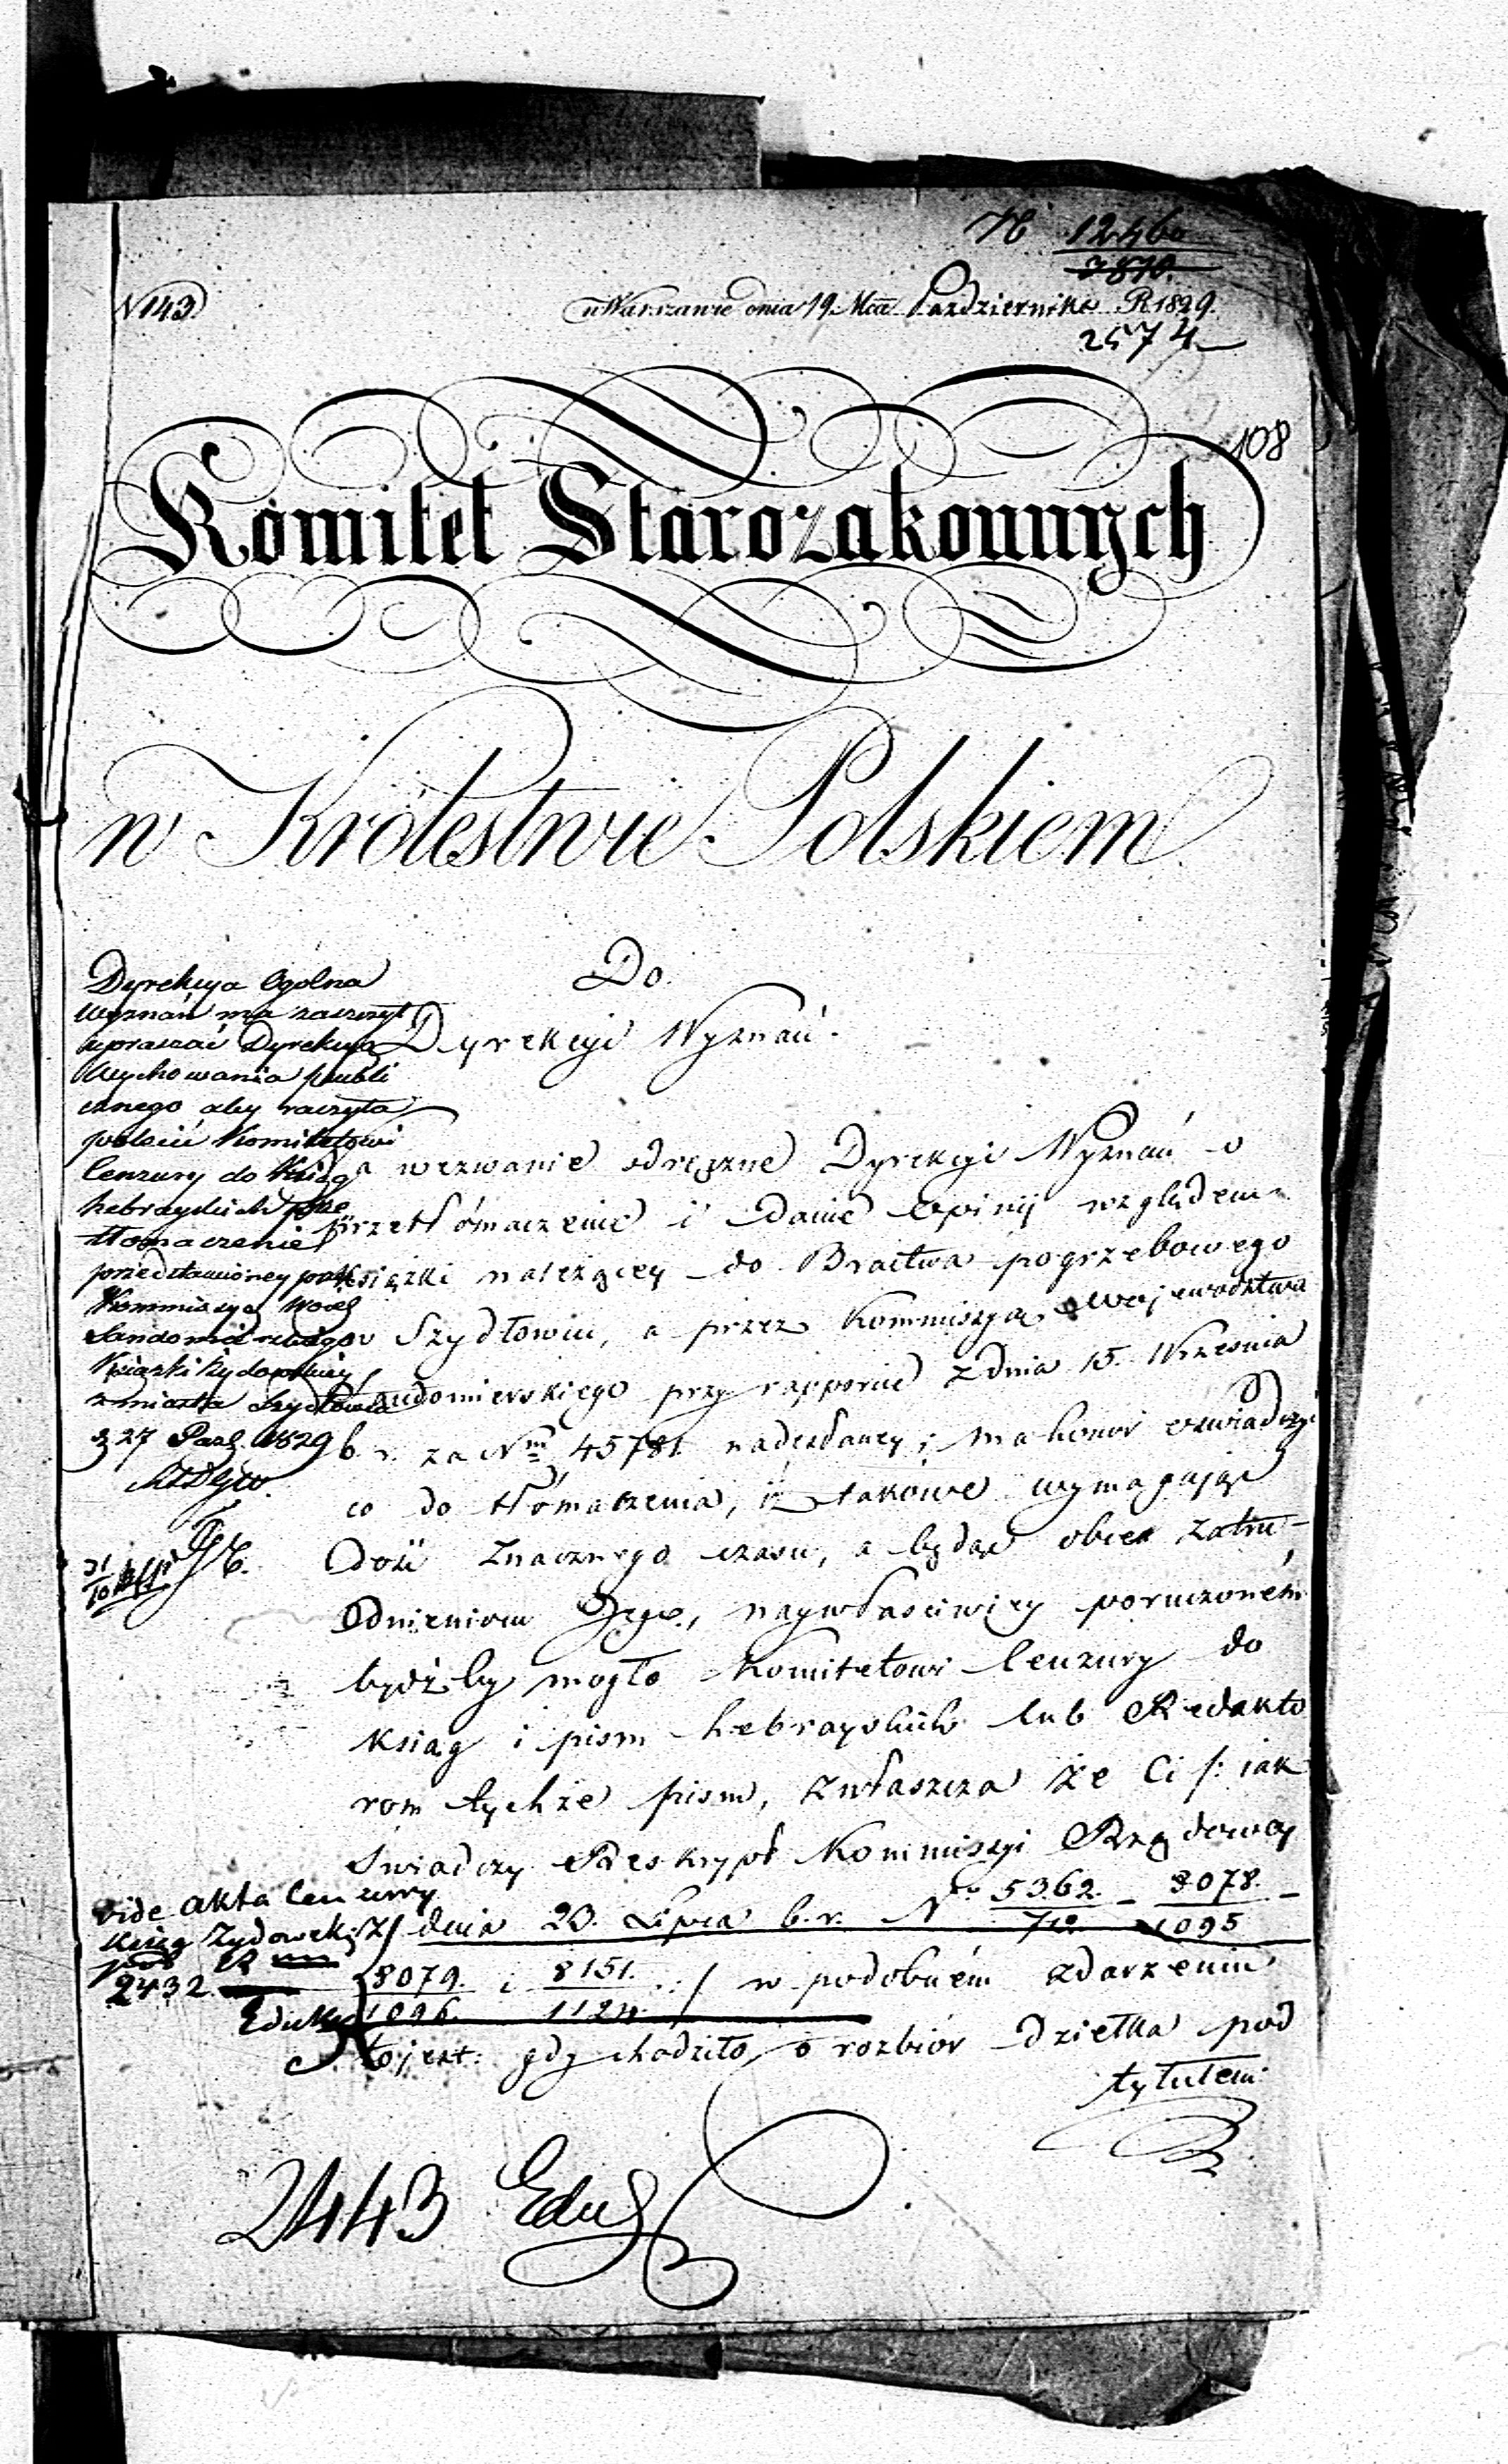 N 143
12460
7870.
w Warszawie dnia 19 Mca Października R 1829.
2574
108
Komitet Starozakonnych
w Królestwie Polskiem
Do
Dyrekcyi Wyznań.
Dyrekcya Ogólna
Wyznań ma zaszczyt
upraszać Dyrekcyą
Wychowania publi
cznego aby raczyła
polecić Komitetowi
Cenzury do Ksiąg
hebrayskich prze
tłomaczenie
przedstawioney przez
Kommissyą Wojew
Sandomierskiego
Książki Żydowskiey
z miasta Szydłowca
d 27 Paźd. 1829
31/10
Na wezwanie odręczne Dyrekcyi Wyznań o
przetłómaczenie i danie opinij względem
książki należącey do Bractwa pogrzebowego
w Szydłowcu, a przez Kommissyą Województwa
Sandomierskiego przy rapporcie z dnia 15. Września
b. r. za Nrm 45781 nadesłaney; ma honor oświadczyć
co do tłómaczenia, iż takowe wymagając
dość znacznego czasu, a będąc obcem zatru-
dnieniom Jego, naywłaściwiey poruczoném
bydźby mogło Komitetowi Cenzury do
ksiąg i pism hebrayskich lub Redakto
rom tychże pism, zwłaszcza że Ci /: jak
świadczy Reskrypt Kommissyi Rządowey
z dnia 20. Lipca b. r. No 5362./712 - 8078./1095 -
8079./1096. i 8151./1124. :/ w podobném zdarzeniu
to jest: gdy chodziło o rozbiór dziełka pod
tytułem
vide akta Cenzury
Ksiąg Żydowski
pod
2432.
Eduk
2443 Eduk